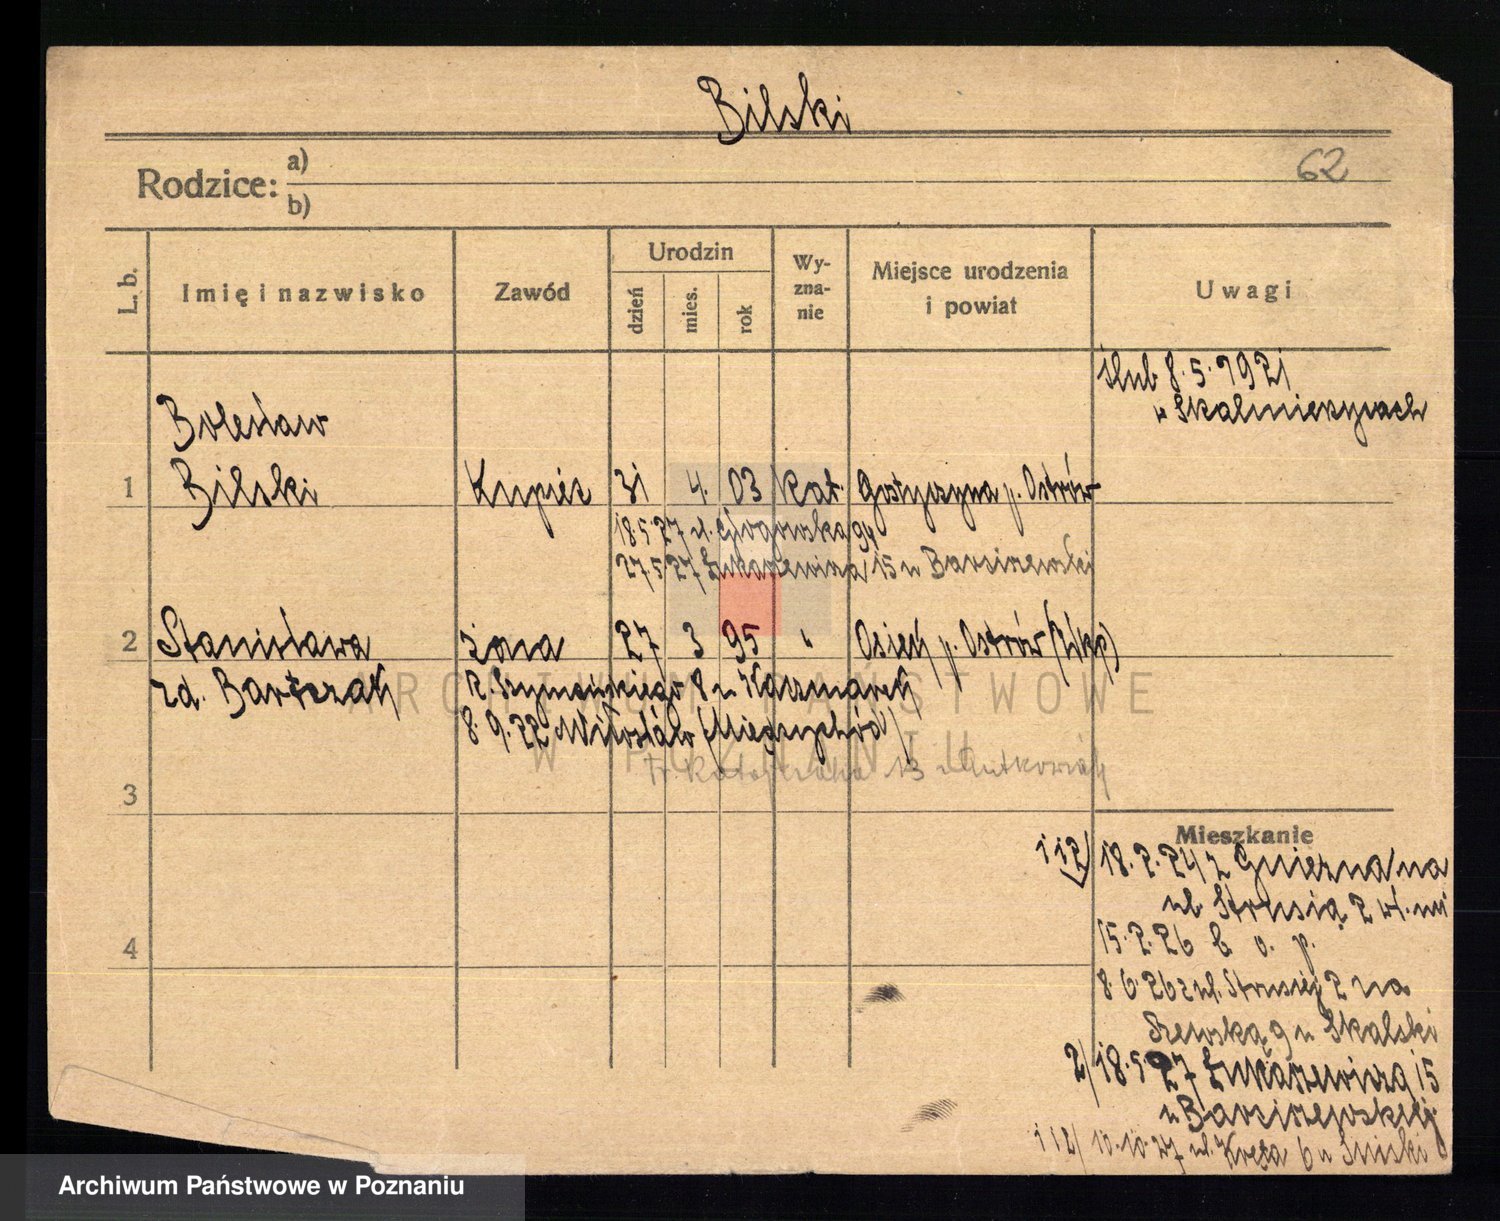 Bilski
62
Rodzice: a)
b)
L. b.
Imię i nazwisko
Zawód
Urodzin
dzień
mies.
rok
Wy-
zna-
nie
Miejsce urodzenia
i powiat
Uwagi
ślub 8.5.1921
w Skalmierzycach
Bolesław
1 Bilski Kupiec 31 4. 03 kat. Gostyczyna p. Ostrów
18.5.27 ul. Głogowska 94
27.5.27 Łukaszewicza 15 u Barciszewski
2 Stanisława żona 27 3 95 " Osiek p. Ostrów (Wkp)
zd. Bartczak R. Szymańskiego 8 u Kaczmarek
8.9.22 Miłosław (Międzychód)
Fr. Ratajczaka 13 u Rutkowiak
3
4
Mieszkanie
1 i 2/ 18.2.24 z Gniezna na
ul. Strusią 2 wł. m
15.2.26 b. o. p.
8.6.26 z ul. Strusiej 2 na
Szewską 9 u Skalski
2/ 18.5.27 Łukaszewicza 15
u Barciszewskiej
1 i 2/ 10.10.27 ul. Kręta 6 u
ARCHIWUM PAŃSTWOWE
W POZNANIU
Archiwum Państwowe w Poznaniu